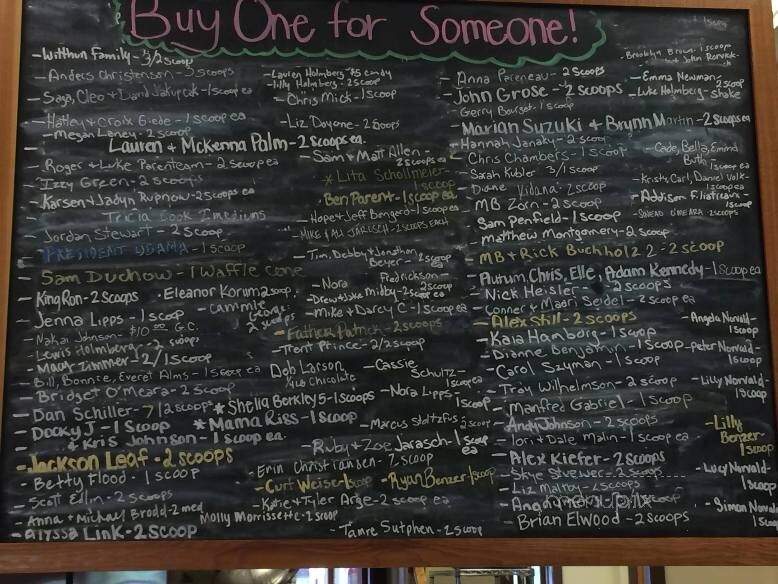 Buy One for Someone!
- Witthun Family - 3/2 scoop
- Anders Christenson - 3 scoops
- Saga, Cleo + David Jakupcak - 1 scoop ea
- Hatley + Croix Giede - 1 scoop ea
- Megan Laney - 2 scoop
Lauren + McKenna Palm - 2 scoops ea.
- Roger + Luke Parenteam - 2 scoop ea
- Izzy Green - 2 scoops
- Karsen + Jadyn Rupnow - 2 scoops ea
- Tricia Cook 1 medium
- Jordan Stewart - 2 scoop
- PRESIDENT OBAMA - 1 SCOOP
- Sam Duchow - 1 Waffle cone
- King Ron - 2 scoops
- Eleanor Korum 2 scoop
- Jenna Lipps - 1 scoop
- cammie
George
2 scoops
- Nakai Johnson - $10 G.C.
- Lewis Holmberg - 2 scoops
- Macy Zimmer - 2/1 scoop
- Bill, Bonnie, Everet Alms - 1 scoop ea
- Bridget O'Meara - 2 scoop
- Dan Schiller - 7/2 scoops
* Shelia Berkley 5 - 1 Scoops
- Docky J - 1 Scoop
* Mama Riss - 1 Scoop
& Kris Johnson - 1 scoop ea.
- Jackson Leaf - 2 scoops
- Betty Flood - 1 scoop
- Scott Edlin - 2 scoops
- Anna + Michael Brodd - 2 med
Molly Morrissette - 2 scoop
- Alyssa Link - 2 scoop
- Lauren Holmberg $5 candy
- Lilly Holmberg - 2 scoop
- Chris Mick - 1 scoop
- Liz Doyone - 2 scoops
- Sam + Matt Allen - 2 scoops ea
* Lita Schollmeier - 1 scoop
Ben Parent - 1 scoop ea
- Hope + Jeff Bengero - 1 scoop ea
- MIKE & ALI JARUSCH - 2 SCOOPS EACH
- Tim, Debby + Jonathan Beyer - 2 scoop ea
- Nora Fredrickson
- Drew + Luke Midby - 2 scoop ea
- Mike + Darcy C - 1 scoop ea
- Father Patrick - 2 scoops
- Trent Prince - 2/2 scoop
Dob Larson, 1/4 lb Chocolate
- Cassie Schultz - 1 scoop ea
- Nora Lipps - 1 scoop
- Marcus Stoltzfus - 2 scoop
- Ruby + Zoe Jarasch - 1 scoop ea
- Erin Christiansen - 2 scoop
- Curt Weiser 1 scoop
- Ryan Benzer - 1 scoop
- Katie + Tyler Arge - 2 scoop ea
- Tamre Sutphen - 2 scoop
- Anna Pareneau - 2 scoops
- John Grose - 2 scoops
- Gerry Bouget - 1 scoop
- Marian Suzuki & Brynn Martin - 2 scoops ea
- Hannah Janaky - 2 scoop
- Chris Chambers - 1 scoop
- Sarah Kubler 3/1 scoop
- Diane Vidana - 2 scoop
- MB Zorn - 2 scoop
Sam Penfield - 1 scoop
- Matthew Montgomery - 2 scoop
- MB + Rick Buchholz 2 - 2 scoop
- Autum, Chris, Elle, Adam Kennedy - 1 scoop ea
- Nick Heisler - 2 scoops
- Conner & Maari Seidel - 2 scoop ea
- Alex Still - 2 scoops
- Kaia Hamborg - 1 scoop
- Dianne Benjamin - 1 scoop
- Carol Szyman - 1 scoop
- Tray Wilhelmson - 2 scoop
- Manfred Gabriel - 1 scoop
- Andy Johnson - 2 scoops
- Tori + Dale Malin - 1 scoop ea
- Alex Kiefer - 2 scoops
- Skye Stuewer - 2 scoops
- Liz Maltby - 2 scoops
- Brian Elwood - 2 scoops
- Brooklyn Brown - 1 scoop
- Emma Newman - 2 scoop
- Luke Holmberg - shake
- Cade, Bella, Emma Buth 1 scoop ea
- Kristi, Carl, Daniel Volk - 1 scoop ea
- Addison - 1 scoop
- SINEAD O'MEARA 2 SCOOPS
- Angela Norvald - 1 scoop
- Peter Norvald - 1 scoop
- Lilly Norvald - 1 scoop
- Lilly Benzer - 1 scoop
- Lucy Norvald - 1 scoop
- Simon Norvald 1 scoop